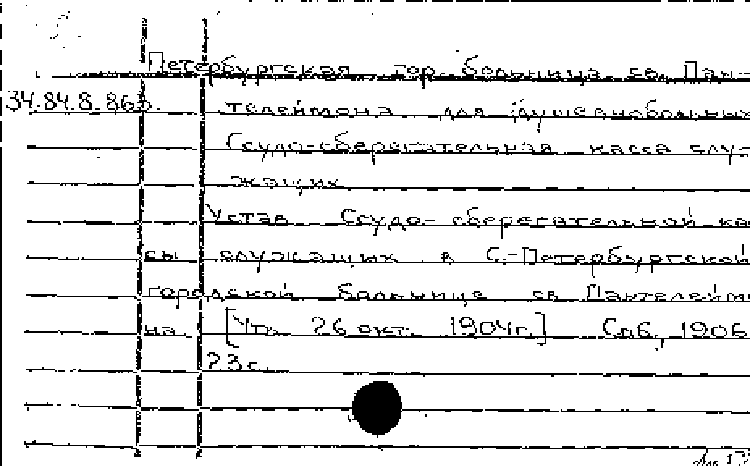 Петербургская гор. больница св. Пан-
34.84.8.863.
телеймона для душевнобольных
Ссудо-сберегательная касса слу-
жащих
Устав Ссудо-сберегательной кас
сы служащих в С.-Петербургской
городской больнице св. Пантелеймо
на [Утв. 26 окт. 1904г.] Спб, 1906
23с.